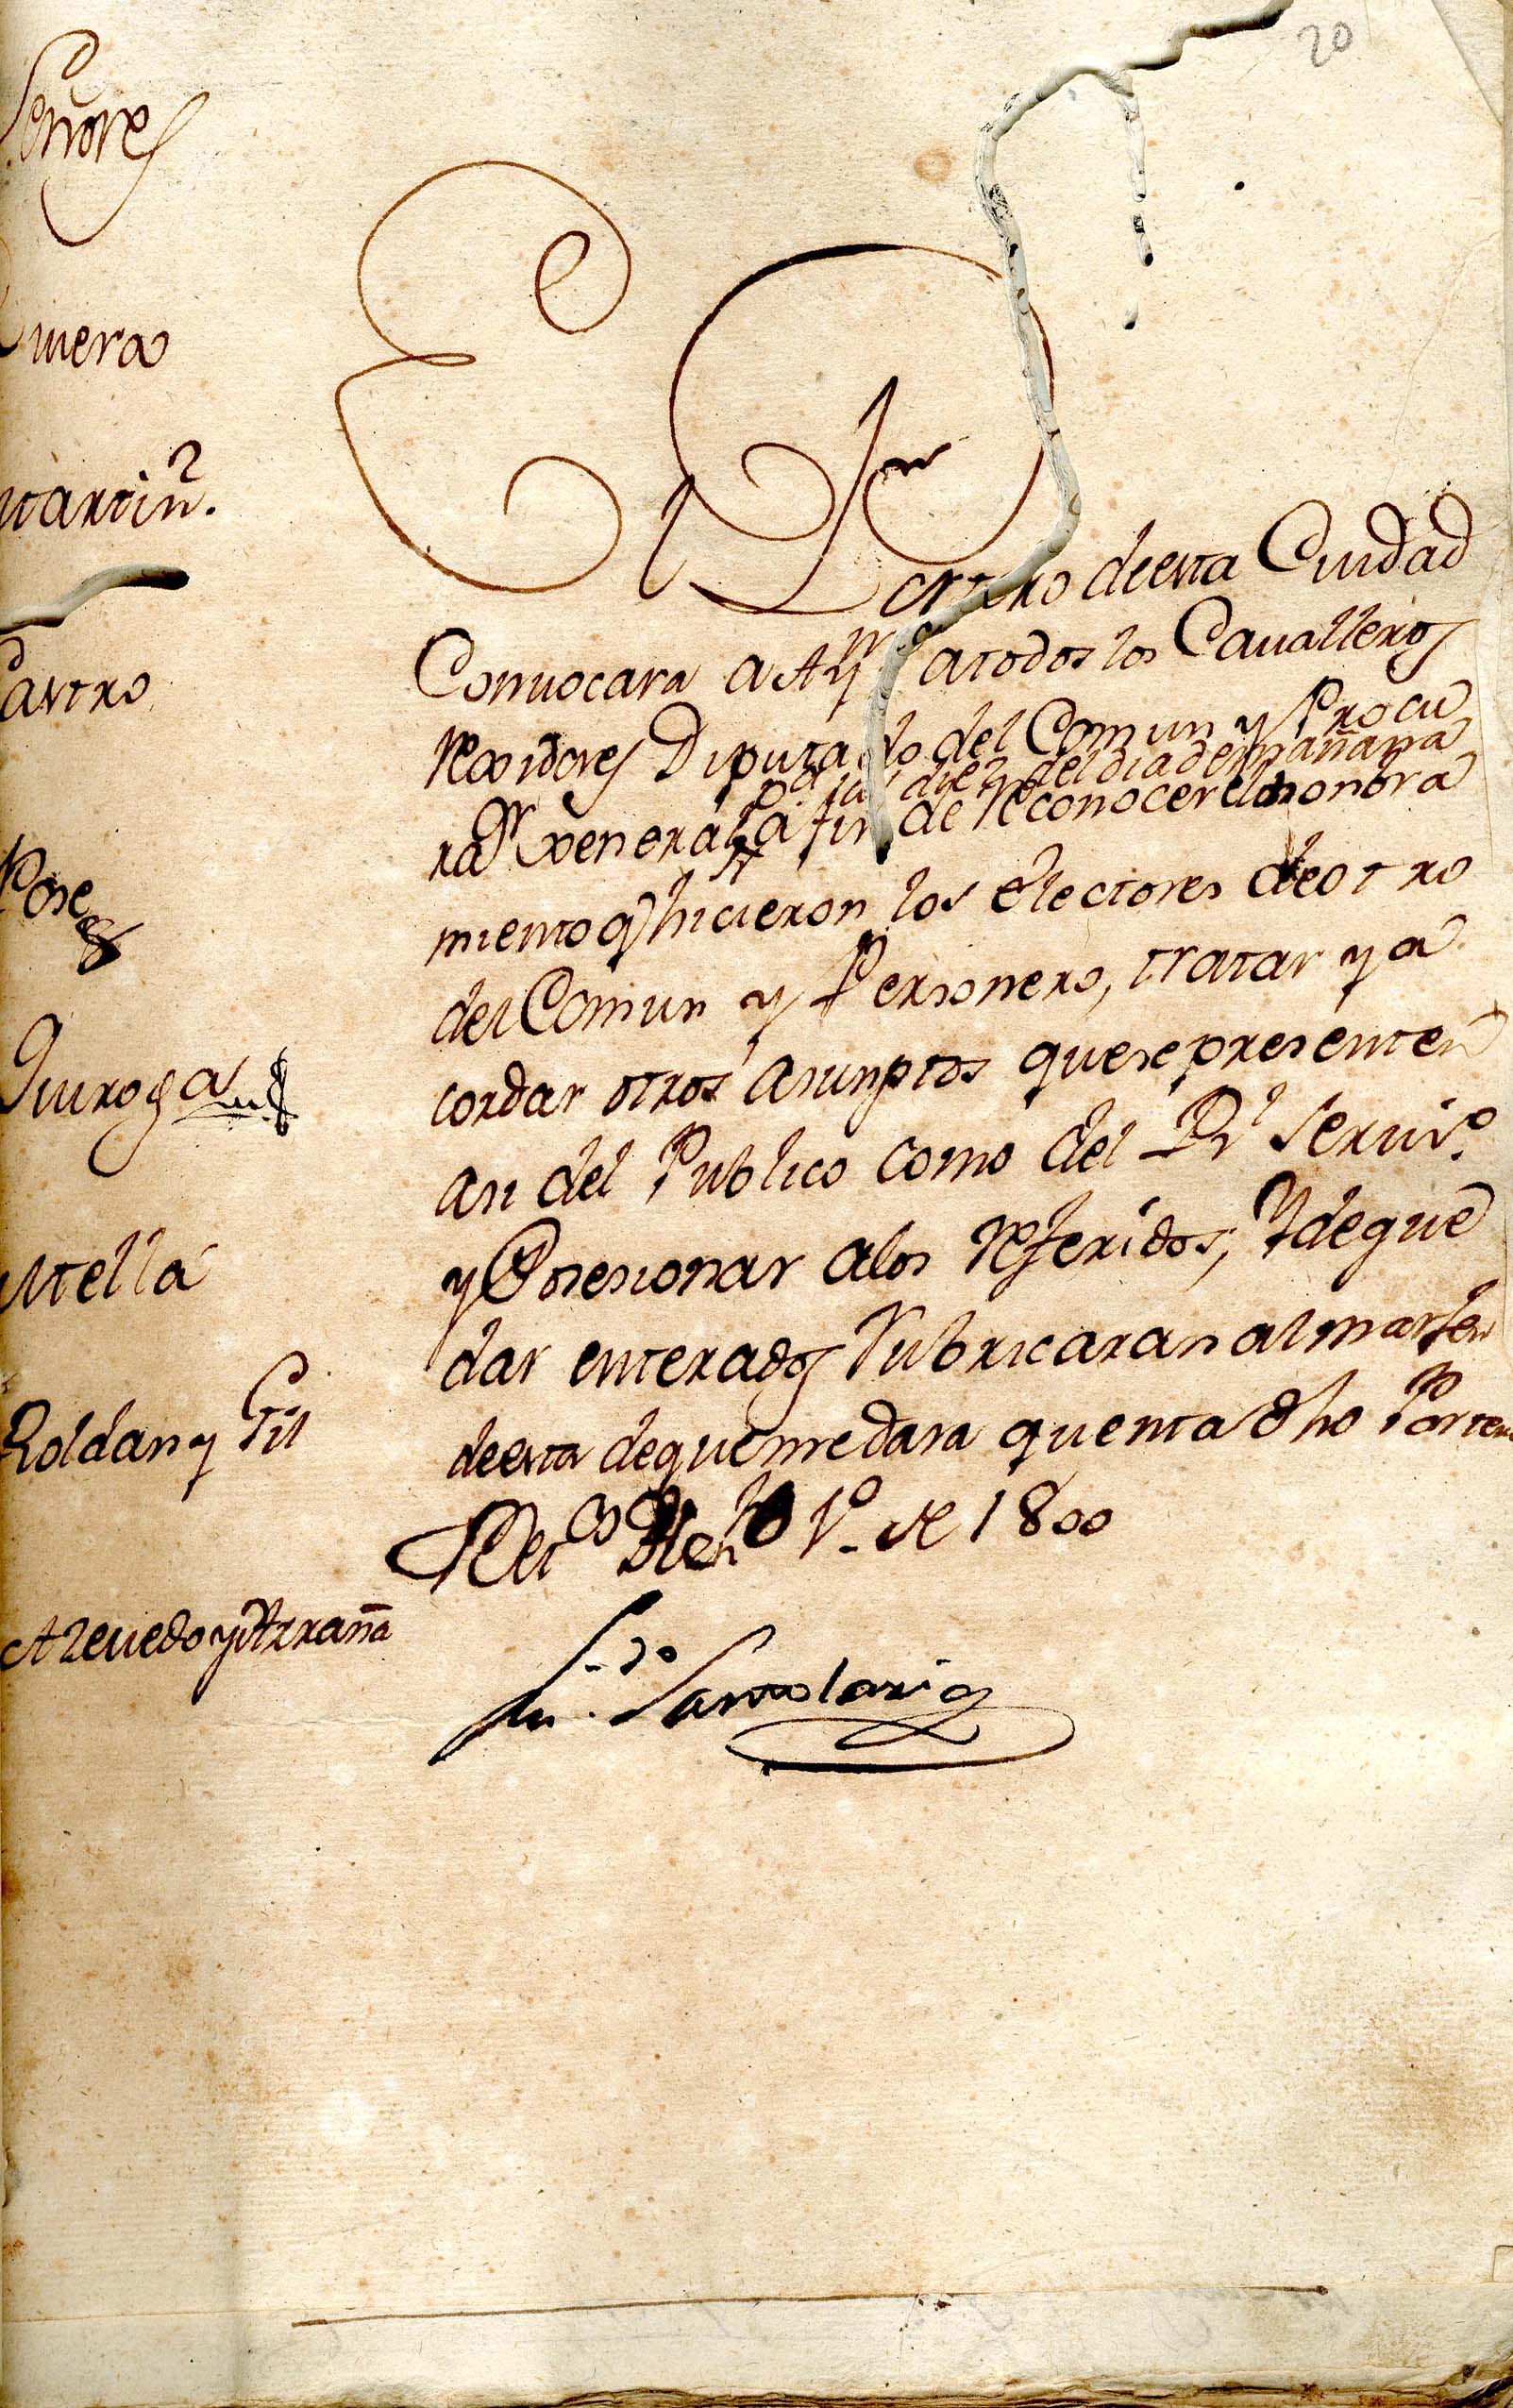 20
Señores
Rivera
Martinz.
Castro
Pose
Quiroga
Mella
Roldan y Gil
Azevedo y Arraña
El Portero deesta Ciudad
Convocara a Ayto atodos los Cavalleros
Rexidores Diputado del Comun y Procu
rador xeneral pa las diez del dia de mañana
a fin de Reconocer el nonbra
miento q hicieron los Electores de otro
del Comun y Personero, tratar y a
cordar otros asunptos quese presenten
asi del Publico como del Rl servico.
y Posesionar alos Referidos; Y de que
dar enterados Rubricaran al marjen
deesta dequemedara quenta dho Portero
Bets Eno 1o de 1800
Santa Maria